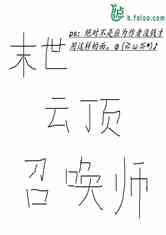 b.faloo.com
ps：绝对不是应为作者没钱才
用这样的面。
末世
云顶
召唤师